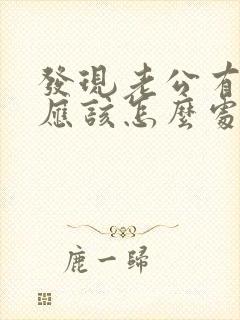 發現老公有
應該怎麼處
鹿一歸